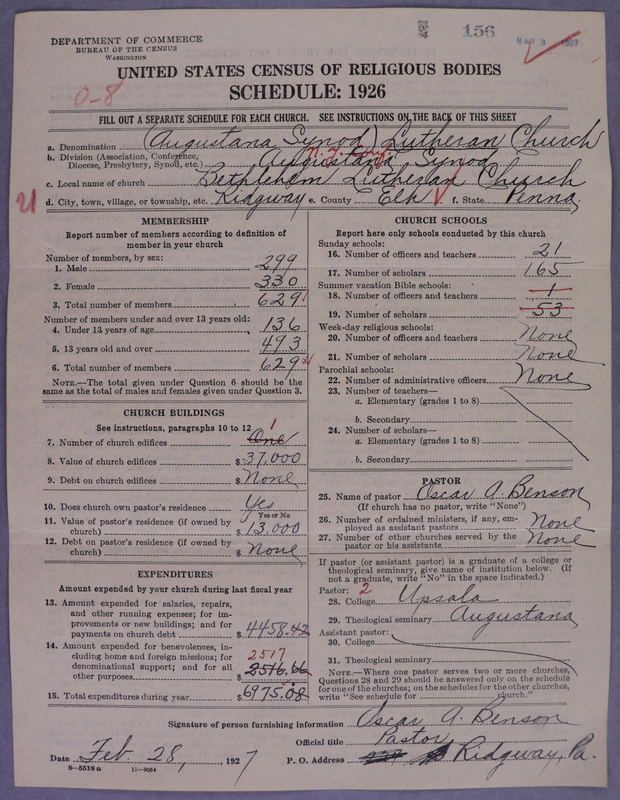 156
MAR 8 1927
DEPARTMENT OF COMMERCE
BUREAU OF THE CENSUS
WASHINGTON
UNITED STATES CENSUS OF RELIGIOUS BODIES
SCHEDULE: 1926
0-8
FILL OUT A SEPARATE SCHEDULE FOR EACH CHURCH. SEE INSTRUCTIONS ON THE BACK OF THIS SHEET
a. Denomination (Augustana Synod) Lutheran Church
b. Division (Association, Conference, Diocese, Presbytery, Synod, etc.) Augustana Synod
c. Local name of church Bethlehem Lutheran Church
21 d. City, town, village, or township, etc. Ridgway e. County Elk f. State Penna.
MEMBERSHIP
Report number of members according to definition of
member in your church
Number of members, by sex:
1. Male 299
2. Female 330
3. Total number of members 629
Number of members under and over 13 years old:
4. Under 13 years of age 136
5. 13 years old and over 493
6. Total number of members 629
NOTE.—The total given under Question 6 should be the
same as the total of males and females given under Question 3.
CHURCH BUILDINGS
See instructions, paragraphs 10 to 12
7. Number of church edifices One 1
8. Value of church edifices $ 37,000
9. Debt on church edifices $ None
10. Does church own pastor's residence Yes
Yes or No
11. Value of pastor's residence (if owned by
church) $ 13,000
12. Debt on pastor's residence (if owned by
church) $ None
EXPENDITURES
Amount expended by your church during last fiscal year
13. Amount expended for salaries, repairs,
and other running expenses; for im-
provements or new buildings; and for
payments on church debt $ 4458.42
14. Amount expended for benevolences, in-
cluding home and foreign missions; for
denominational support; and for all
other purposes $ 2516.66
2517
15. Total expenditures during year $ 6975.08
CHURCH SCHOOLS
Report here only schools conducted by this church
Sunday schools:
16. Number of officers and teachers 21
17. Number of scholars 165
Summer vacation Bible schools:
18. Number of officers and teachers 1
19. Number of scholars 53
Week-day religious schools:
20. Number of officers and teachers None
21. Number of scholars None
Parochial schools:
22. Number of administrative officers None
23. Number of teachers—
a. Elementary (grades 1 to 8)
b. Secondary
24. Number of scholars—
a. Elementary (grades 1 to 8)
b. Secondary
PASTOR
25. Name of pastor Oscar A. Benson
(If church has no pastor, write "None")
26. Number of ordained ministers, if any, em-
ployed as assistant pastors None
27. Number of other churches served by the
pastor or his assistants None
If pastor (or assistant pastor) is a graduate of a college or
theological seminary, give name of institution below. (If
not a graduate, write "No" in the space indicated.)
Pastor: 2
28. College Upsala
29. Theological seminary Augustana
Assistant pastor:
30. College
31. Theological seminary
NOTE.—Where one pastor serves two or more churches,
Questions 28 and 29 should be answered only on the schedule
for one of the churches; on the schedules for the other churches,
write "See schedule for church."
Signature of person furnishing information Oscar A. Benson
Official title Pastor
Date Feb. 28, 1927 P. O. Address Ridgway, Pa.
8—5518 a 11—9054